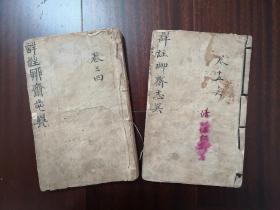 詳註聊齋志異
卷三四
詳註聊齋志異
卷五六